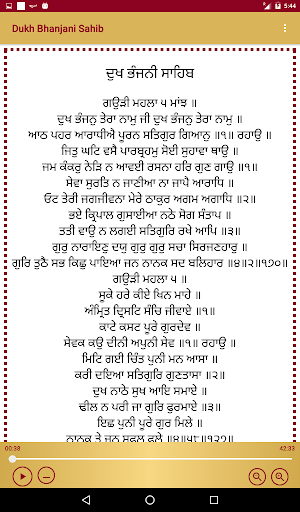 5:44
Dukh Bhanjani Sahib
ਦੁਖ ਭੰਜਨੀ ਸਾਹਿਬ
ਗਉੜੀ ਮਹਲਾ ੫ ਮਾਂਝ ॥
ਦੁਖ ਭੰਜਨੁ ਤੇਰਾ ਨਾਮੁ ਜੀ ਦੁਖ ਭੰਜਨੁ ਤੇਰਾ ਨਾਮੁ ॥
ਆਠ ਪਹਰ ਆਰਾਧੀਐ ਪੂਰਨ ਸਤਿਗੁਰ ਗਿਆਨੁ ॥੧॥ ਰਹਾਉ ॥
ਜਿਤੁ ਘਟਿ ਵਸੈ ਪਾਰਬ੍ਰਹਮੁ ਸੋਈ ਸੁਹਾਵਾ ਥਾਉ ॥
ਜਮ ਕੰਕਰੁ ਨੇੜਿ ਨ ਆਵਈ ਰਸਨਾ ਹਰਿ ਗੁਣ ਗਾਉ ॥੧॥
ਸੇਵਾ ਸੁਰਤਿ ਨ ਜਾਣੀਆ ਨਾ ਜਾਪੈ ਆਰਾਧਿ ॥
ਓਟ ਤੇਰੀ ਜਗਜੀਵਨਾ ਮੇਰੇ ਠਾਕੁਰ ਅਗਮ ਅਗਾਧਿ ॥੨॥
ਭਏ ਕ੍ਰਿਪਾਲ ਗੁਸਾਈਆ ਨਠੇ ਸੋਗ ਸੰਤਾਪ ॥
ਤਤੀ ਵਾਉ ਨ ਲਗਈ ਸਤਿਗੁਰਿ ਰਖੇ ਆਪਿ ॥੩॥
ਗੁਰੁ ਨਾਰਾਇਣੁ ਦਯੁ ਗੁਰੁ ਗੁਰੁ ਸਚਾ ਸਿਰਜਣਹਾਰੁ ॥
ਗੁਰਿ ਤੁਠੈ ਸਭ ਕਿਛੁ ਪਾਇਆ ਜਨ ਨਾਨਕ ਸਦ ਬਲਿਹਾਰ ॥੪॥੨॥੧੭੦॥
ਗਉੜੀ ਮਹਲਾ ੫ ॥
ਸੂਕੇ ਹਰੇ ਕੀਏ ਖਿਨ ਮਾਹੇ ॥
ਅੰਮ੍ਰਿਤ ਦ੍ਰਿਸਟਿ ਸੰਚਿ ਜੀਵਾਏ ॥੧॥
ਕਾਟੇ ਕਸਟ ਪੂਰੇ ਗੁਰਦੇਵ ॥
ਸੇਵਕ ਕਉ ਦੀਨੀ ਅਪੁਨੀ ਸੇਵ ॥੧॥ ਰਹਾਉ ॥
ਮਿਟਿ ਗਈ ਚਿੰਤ ਪੁਨੀ ਮਨ ਆਸਾ ॥
ਕਰੀ ਦਇਆ ਸਤਿਗੁਰਿ ਗੁਣਤਾਸਾ ॥੨॥
ਦੁਖ ਨਾਠੇ ਸੁਖ ਆਇ ਸਮਾਏ ॥
ਢੀਲ ਨ ਪਰੀ ਜਾ ਗੁਰਿ ਫੁਰਮਾਏ ॥੩॥
ਇਛ ਪੁਨੀ ਪੂਰੇ ਗੁਰ ਮਿਲੇ ॥
ਨਾਨਕ ਤੇ ਜਨ ਸੁਫਲ ਫਲੇ ॥੪॥੫੮॥੧੨੭॥
00:38 42:33